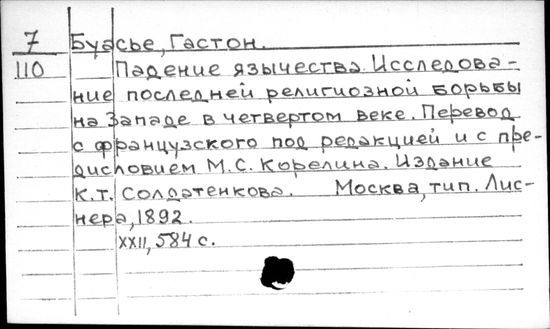 7 Буасье, Гастон.
110 Падение язычества. Исследова-
ние последней религиозной борьбы
на Западе в четвертом веке. Перевод
с французского под редакцией и с пре-
дисловием М.С. Корелина. Издание
К.Т. Солдатенкова. Москва, тип. Лис-
нера, 1892.
XXII, 584 с.